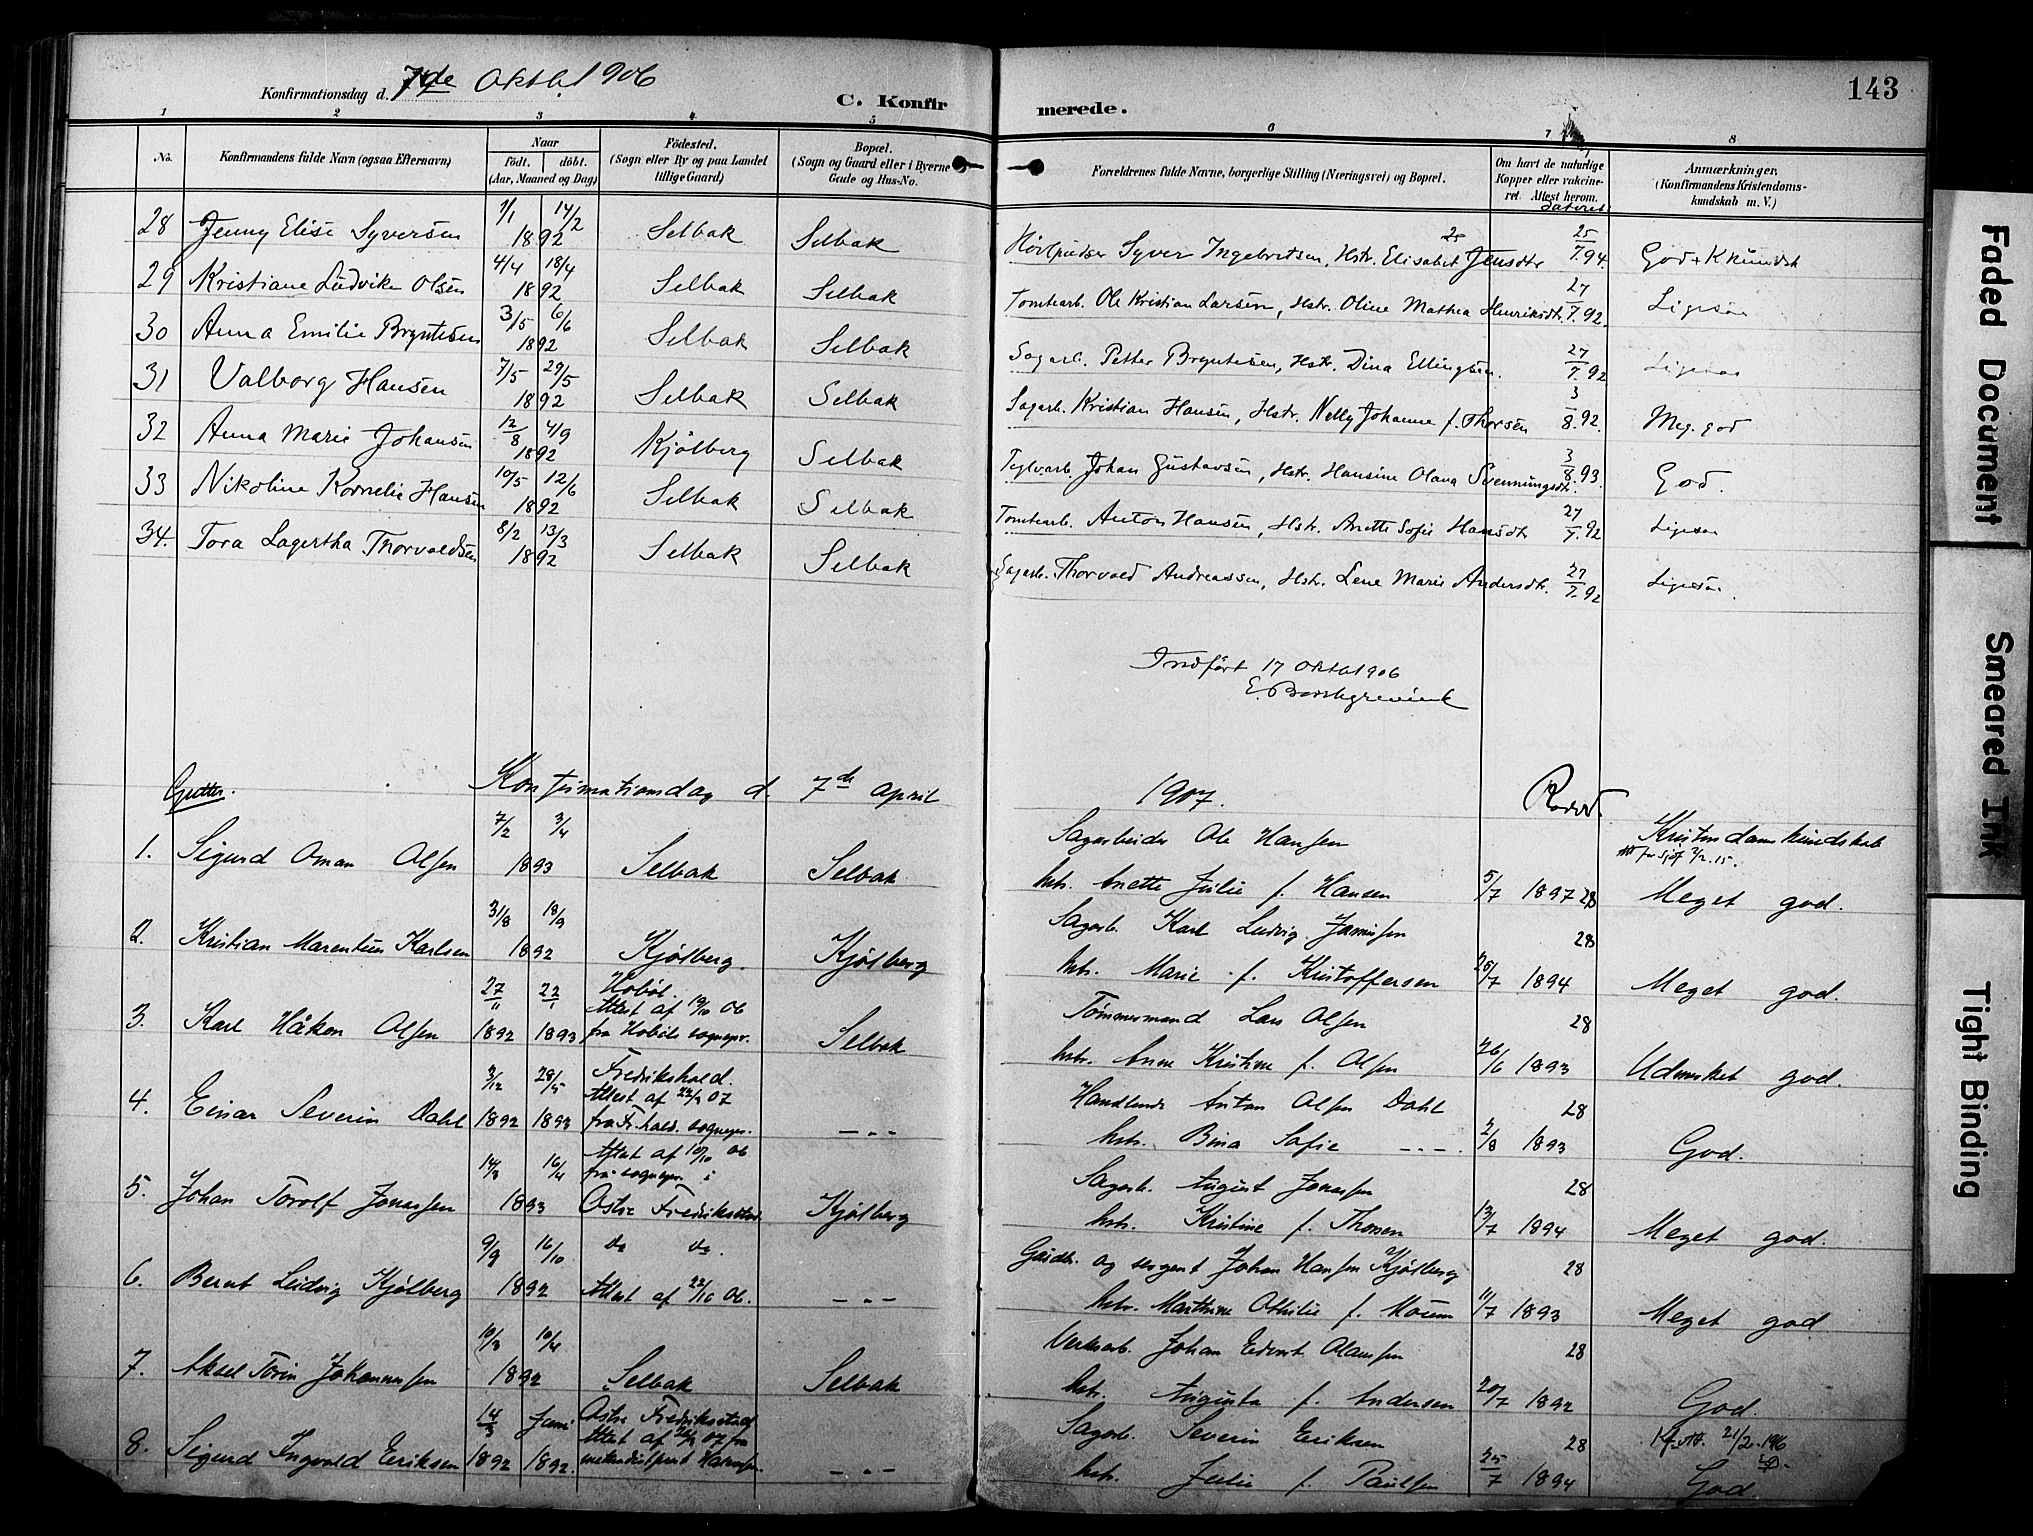 Konfirmationsdag d. 7de Oktbr 1906
C. Konfirmerede.
143
1 2 3 4 5 6 7 8
No.
Konfirmandens fulde Navn (ogsaa Efternavn)
Naar
födt. döbt.
(Aar, Maaned og Dag)
Födested.
(Sogn eller By og paa Landet
tillige Gaard)
Bopæl.
(Sogn og Gaard eller i Byerne
Gade og Hus-No.
Forældrenes fulde Navne, borgerlige Stilling (Næringsvei) og Bopæl.
Om havt de naturlige
Kopper eller vakcine-
ret Attest herom.
dateret
Anmærkninger,
(Konfirmandens Kristendoms-
kundskab m. V.)
28 Jenny Elise Syversen 7/1 14/2 1892 Selbak Selbak Syver Ingebretsen, Hstr. Elisabet Jensdtr 25/7.94. God + Kkundsk
29 Kristiane Ludvike Olsen 4/4 18/4 1892 Selbak Selbak Tomtearb. Ole Kristian Larsen, Hstr. Oline Mathea Henriksdt. 27/7.92. Ligesaa
30 Anna Emilie Bryntesen 3/5 6/6 1892 Selbak Selbak Sagarb. Petter Bryntesen, Hstr. Dina Ellingsen. 27/7.92 Ligesaa
31 Valborg Hansen 7/5 29/5 1892 Selbak Selbak Sagarb. Kristian Hansen, Hstr. Nelly Johanne f. Thorsen 3/8.92. Meg. god
32 Anna Marie Johansen 12/8 4/9 1892 Kjölberg Selbak Teglvarb. Johan Gustavsen, Hstr. Hansine Olava Svenningsdt. 3/8.93. God.
33 Nikoline Kornelie Hansen 10/5 12/6 1892 Selbak Selbak Tomtearb. Anton Hansen, Hstr. Anette Sofie Hansdtr 27/7.92 Ligesaa
34. Tora Lagertha Thorvaldsen 8/2 13/3 1892 Selbak Selbak Sagarb. Thorvald Andreassen, Hstr. Lene Marie Andersdtr. 27/7.92 Ligesaa.
Indført 17 Oktbr 1906
E. Borchgrevink
Gutter. Konfirmationsdag d. 7de april 1907.
Kristendomskundskab
1. Sigurd Oman Olsen 7/2 3/4 1893 Selbak Selbak Sagarbeider Ole Hansen
hstr. Anette Julie f. Hansen 5/7 1897 28 Meget god.
2. Kristian Marentius Karlsen 31/8 18/9 1892 Kjölberg. Kjölberg Sagarb. Karl Ludvig 28
hstr. Marie f. Kristoffersen 26/7 1894 Meget god.
3. Karl Håkon Olsen 27/11 1892 22/1 1893 Hobøl.
Attest af 19/10 06
fra Hobøls sognepr. Selbak Tömmermand Lars Olsen 28
hstr. Anne Kristine f. Olsen 26/6 1893 Udmerket god.
4. Einar Severin Dahl 3/12 1892 28/5 1893 Fredrikshald.
Attest af 22/2 07
fra Fr.hald. sognepr. — „ — Handlende Anton Olsen Dahl 28
hstr. Bina Sofie — „ — 2/8 1893 God.
5. Johan Torolf Jonassen 14/3 16/4 1893 Attest af 10/10 06
fra sognepr. i
Østre Fredriksstad Kjölberg Sagarb. August Jonassen 28
hstr. Kristine f. Thorsen 13/7 1894 Meget god.
6. Bernt Ludvig Kjölberg 9/9 16/10 1892 do do.
Attest af 22/10 06. — „ — Gaardbr. og sergent Johan Hansen Kjölberg 28
hstr. Marthine Othilie f. Moum 11/7 1893 Meget god
7. Aksel Torin Johannesen 10/3 10/4 1892 Selbak Selbak Verksarb. Johan Edvart 28
hstr. Augusta f. Andersen 20/7 1892 God.
8. Sigurd Ingvald Eriksen 14/3 1892 Juni 1892. Østre Fredriksstad
Attest af 07 fra
methodistprest — „ — Sagarb. Severin Eriksen 28 21/2 1916
hstr. Julie f. Paulsen 25/7 1894 God.
Faded Document
Smeared Ink
Tight Binding